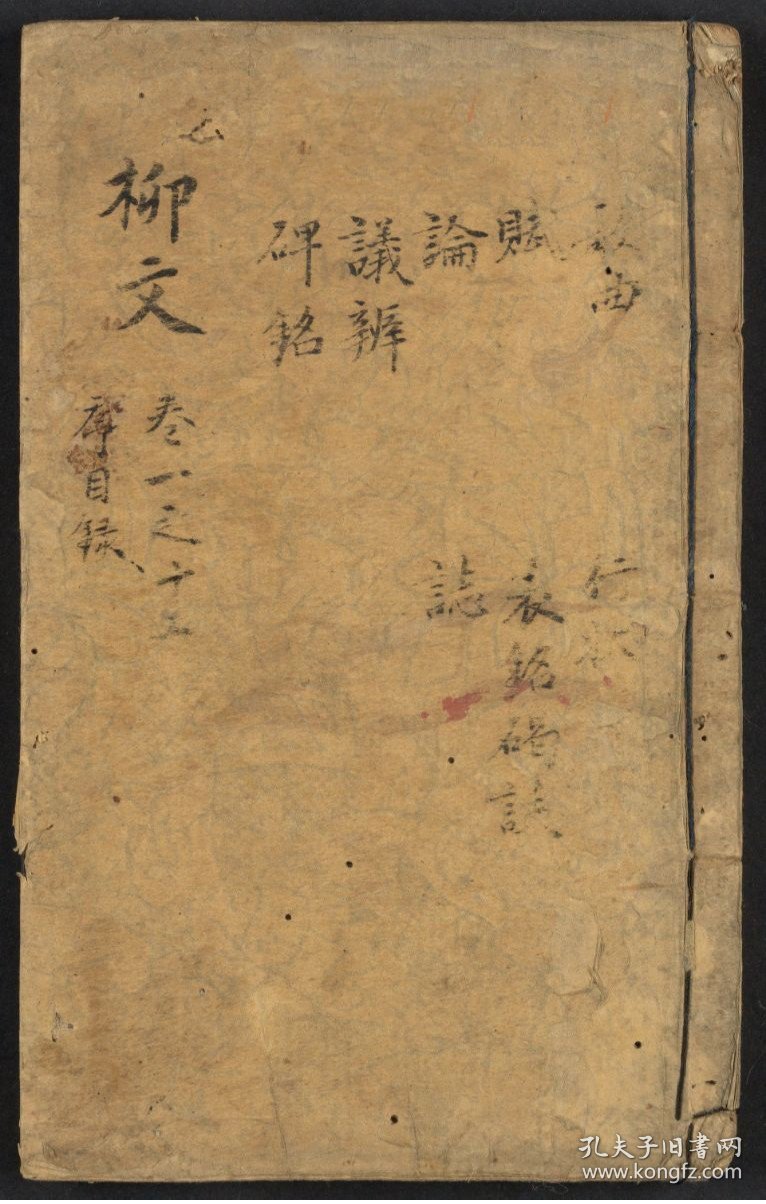 曲
行
賦
表銘碣誌
論
誌
議辨
碑銘
柳文
卷一之十五
序目録
孔夫子旧書网
www.kongfz.com